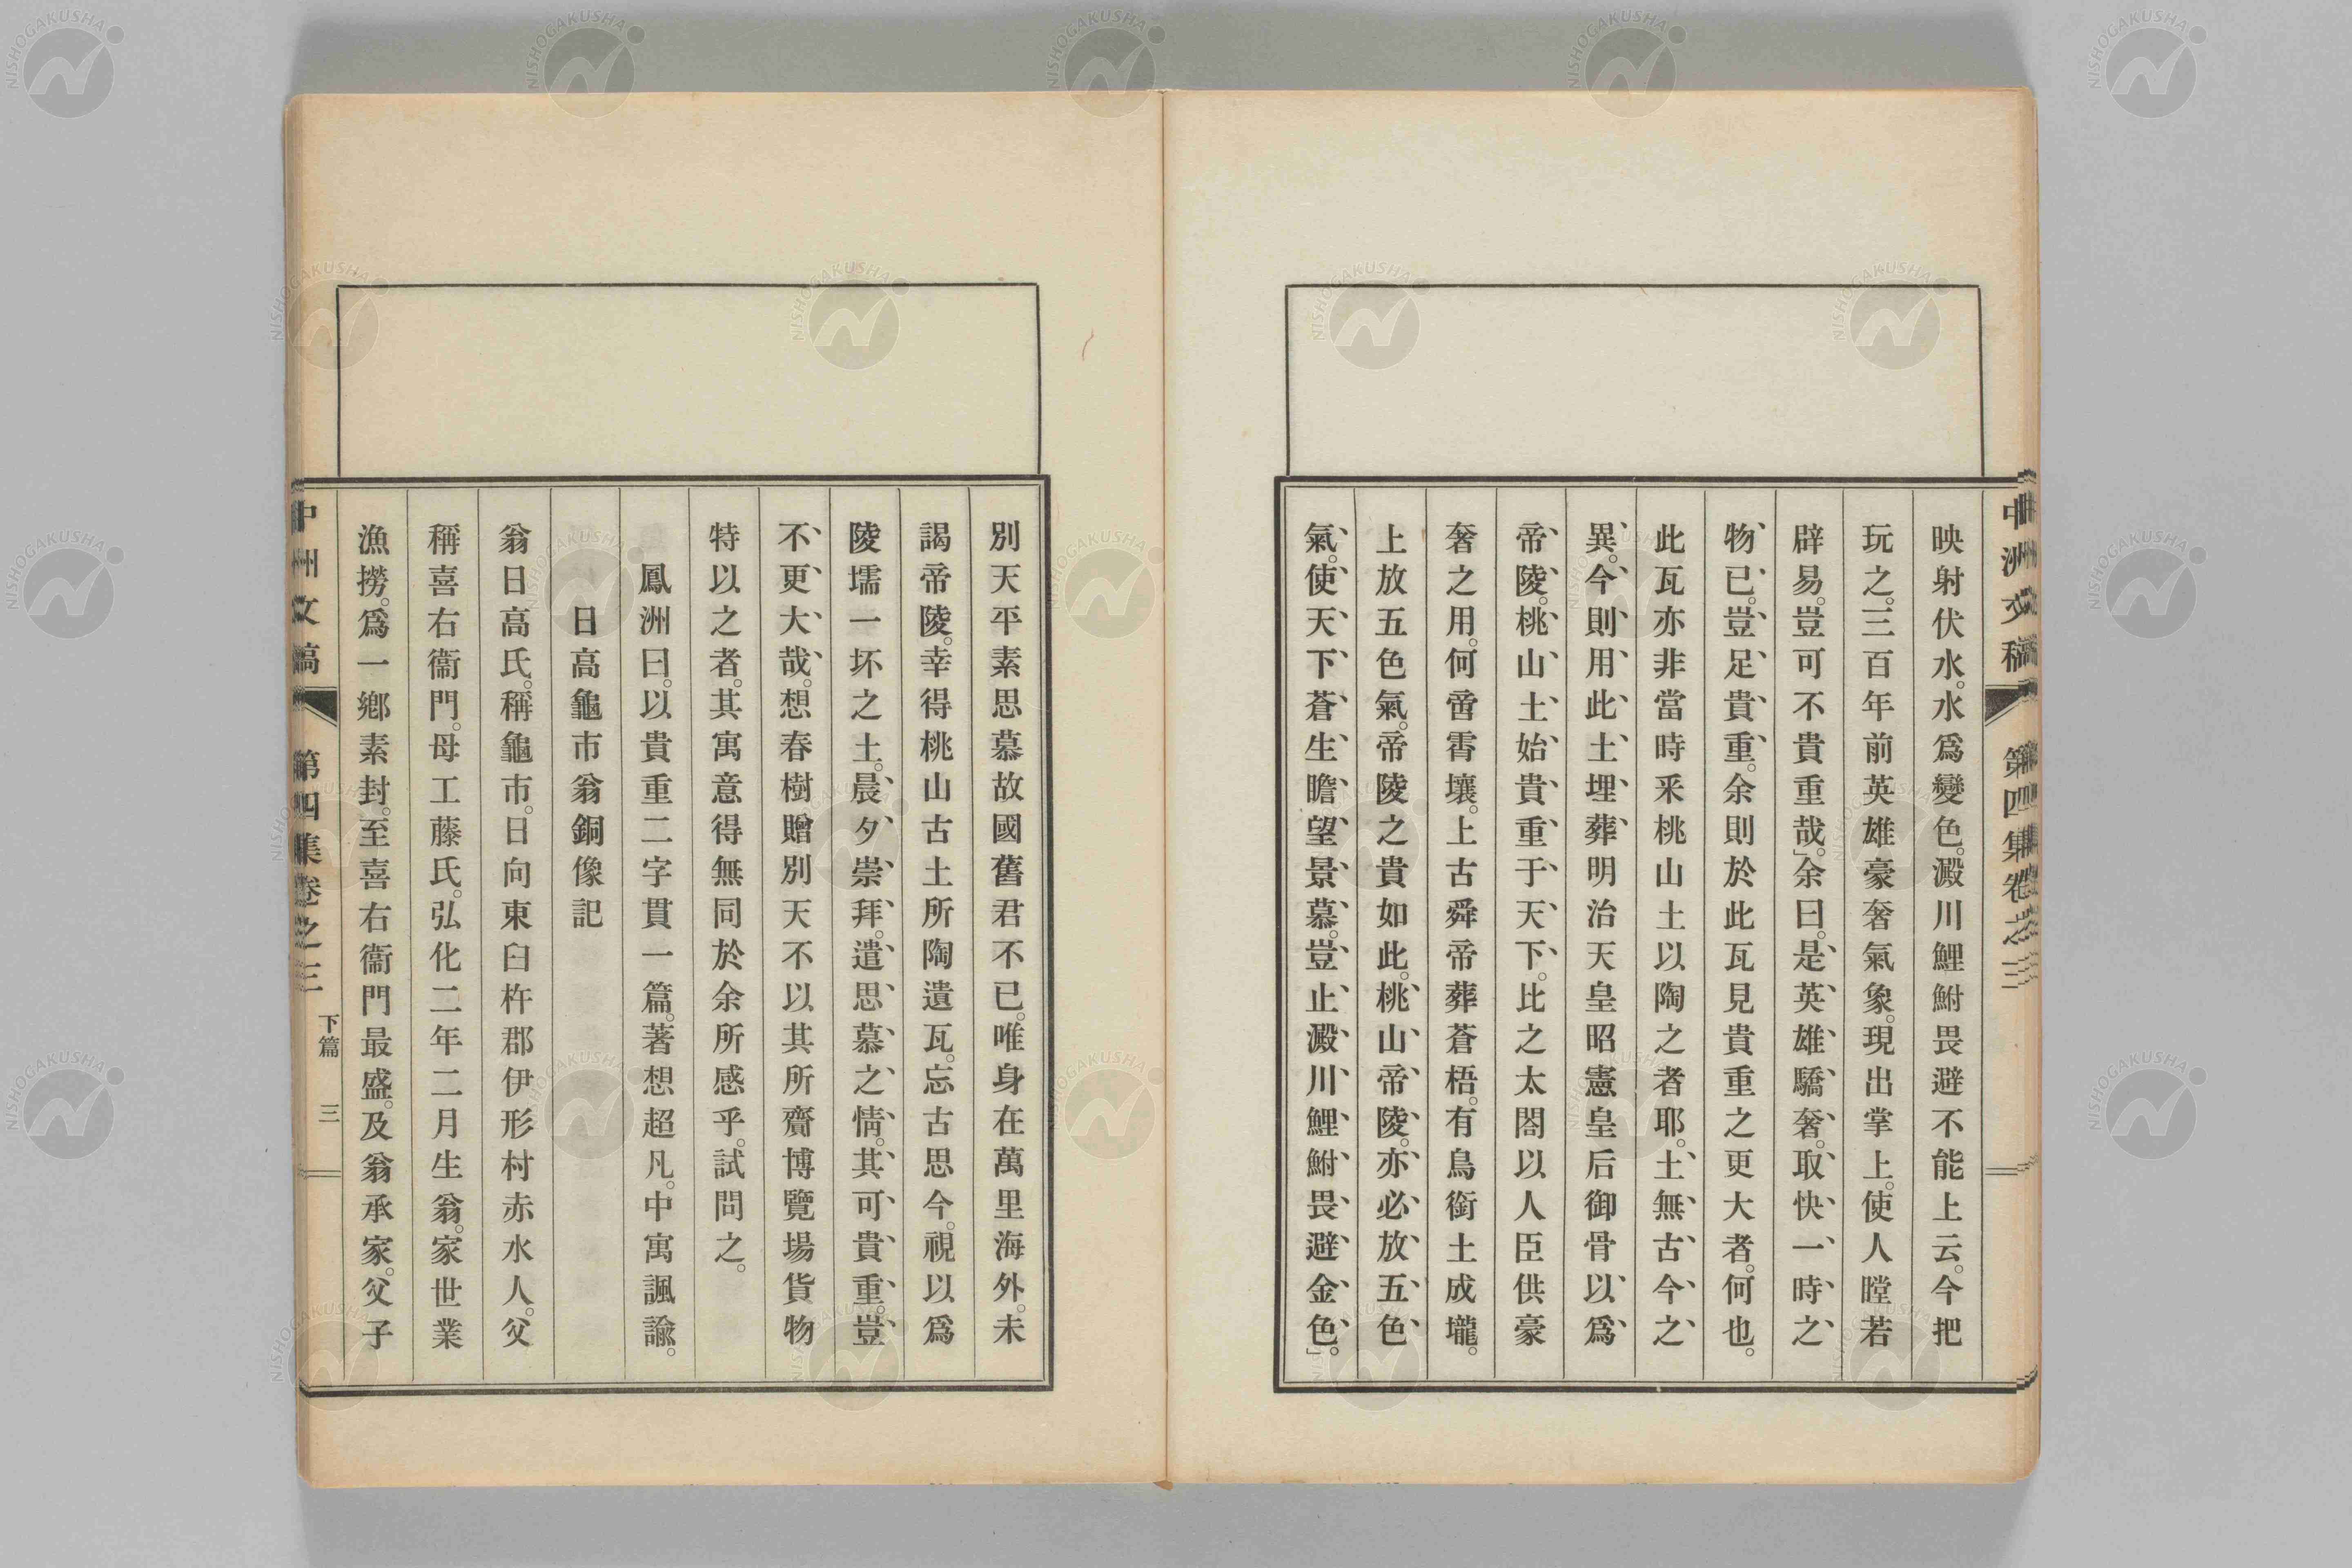 中洲文稿 第四集卷之三
映射伏水。水爲變色。澱川鯉鮒畏避不能上云。今把
玩之。三百年前英雄豪奢氣象。現出掌上。使人瞠若
辟易。豈可不貴重哉。」余曰。是英雄驕奢。取快一時之
物已。豈足貴重。余則於此瓦見貴重之更大者。何也。
此瓦亦非當時釆桃山土以陶之者耶。土無古今之
異。今則用此土埋葬明治天皇昭憲皇后御骨以爲
帝陵。桃山土始貴重于天下。比之太閤以人臣供豪
奢之用。何啻霄壤。上古舜帝葬蒼梧。有鳥銜土成壠。
上放五色氣。帝陵之貴如此。桃山帝陵。亦必放五色
氣。使天下蒼生瞻望景慕。豈止澱川鯉鮒畏避金色。」
別天平素思慕故國舊君不已。唯身在萬里海外。未
謁帝陵。幸得桃山古土所陶遺瓦。忘古思今。視以爲
陵壖一坏之土。晨夕崇拜。遣思慕之情。其可貴重。豈
不更大哉。想春樹贈別天不以其所齎博覽場貨物
特以之者。其寓意得無同於余所感乎。試問之。
鳳洲曰。以貴重二字貫一篇。著想超凡。中寓諷諭。
日高龜市翁銅像記
翁日高氏。稱龜市。日向東臼杵郡伊形村赤水人。父
稱喜右衞門。母工藤氏。弘化二年二月生翁。家世業
漁撈。爲一鄕素封。至喜右衞門最盛。及翁承家。父子
中洲文稿 第四集卷之三 下篇 三
NISHOGAKUSHA